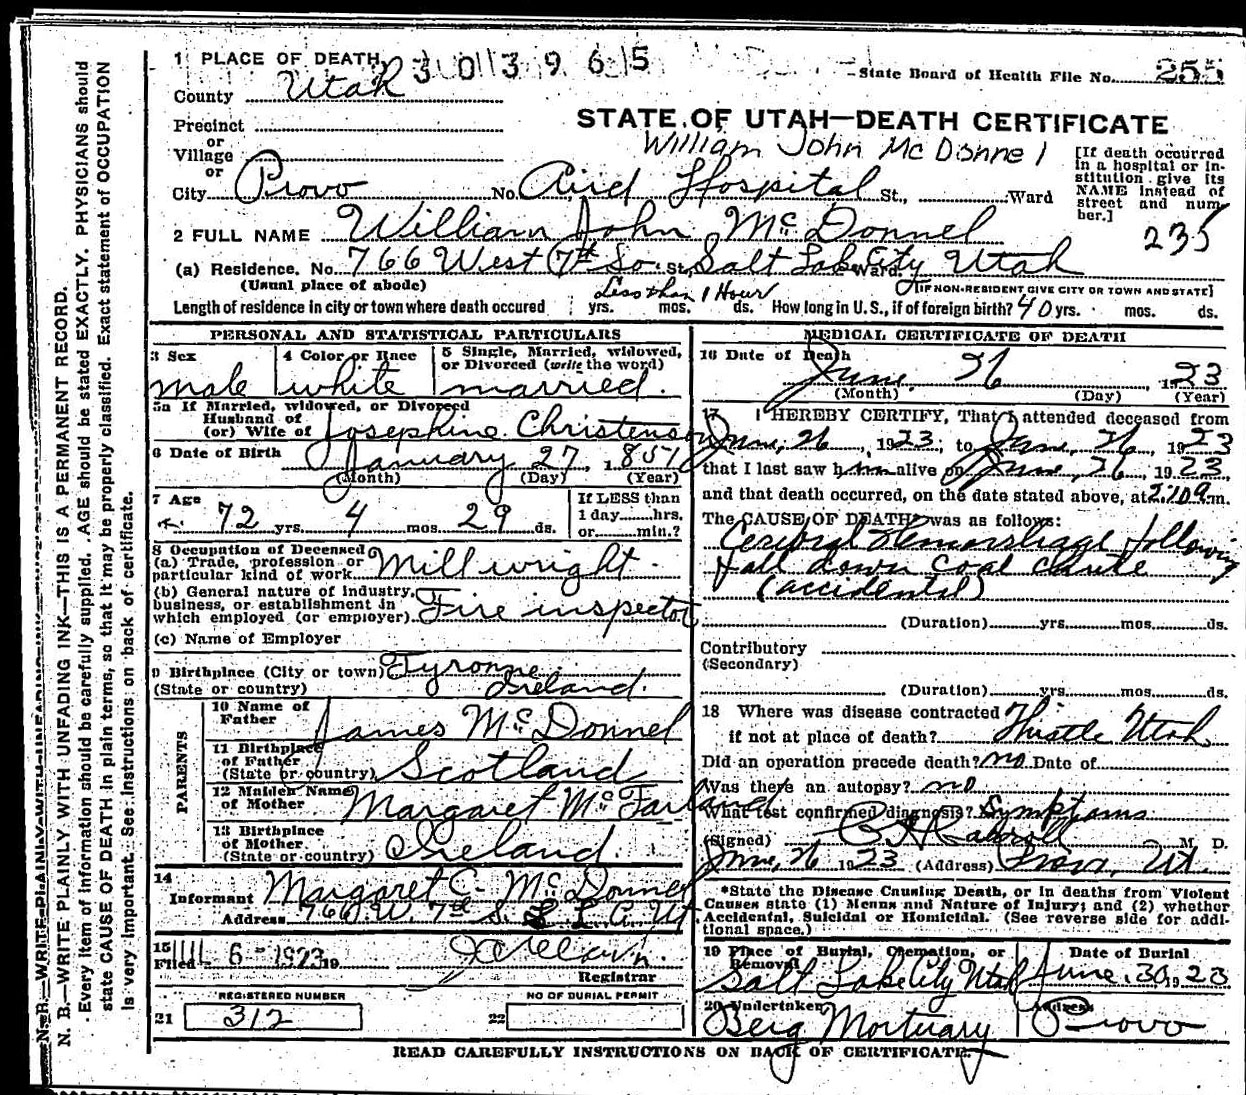 1 PLACE OF DEATH 3 0 1 3 9 6 5
State Board of Health File No. 255
County Utah
STATE OF UTAH—DEATH CERTIFICATE
Precinct
or
Village
or
William John McDonnel
[If death occurred in a hospital or institution give its NAME instead of street and number.]
City Provo No. Aird Hospital St., Ward
235
2 FULL NAME William John McDonnel
(a) Residence. No. 766 West 7th So. St., Salt Lake City Ward. Utah
(Usual place of abode) [IF NON-RESIDENT GIVE CITY OR TOWN AND STATE]
Less than 1 Hour
Length of residence in city or town where death occured yrs. mos. ds. How long in U. S., if of foreign birth? 40 yrs. mos. ds.
PERSONAL AND STATISTICAL PARTICULARS
3 Sex
male
4 Color or Race
white
5 Single, Married, widowed, or Divorced (write the word)
married.
5a If Married, widowed, or Divorced
Husband of
(or) Wife of Josephine Christenson
6 Date of Birth January 27, 1851
(Month) (Day) (Year)
7 Age
72 yrs. 4 mos. 29 ds.
If LESS than
1 day hrs.
or min.?
8 Occupation of Deceased
(a) Trade, profession or
particular kind of work Millwright.
(b) General nature of industry,
business, or establishment in
which employed (or employer) Fire inspector
(c) Name of Employer
9 Birthplace (City or town) Tyronne
(State or country) Ireland.
PARENTS
10 Name of
Father James McDonnel
11 Birthplace
of Father
(State or country) Scotland
12 Maiden Name
of Mother Margaret McFarland
13 Birthplace
of Mother
(State or country) Ireland.
14
Informant Margaret C. McDonnel
Address 766 W. 7th S. S L C. Ut.
15
Filed 6 - 1923 19
Registrar
REGISTERED NUMBER
21 312
NO OF BURIAL PERMIT
22
MEDICAL CERTIFICATE OF DEATH
16 Date of Death
June 26, 1923
(Month) (Day) (Year)
17 I HEREBY CERTIFY, That I attended deceased from
June, 26, 1923; to June, 26, 1923
that I last saw him alive on June, 26, 1923,
and that death occurred, on the date stated above, at m.
The CAUSE OF DEATH* was as follows:
Cerebral Hemorrhage following
fall down coal chute
(accidental)
(Duration) yrs. mos. ds.
Contributory
(Secondary)
(Duration) yrs. mos. ds.
18 Where was disease contracted
if not at place of death? Thistle Utah
Did an operation precede death? no Date of
Was there an autopsy? no
What test confirmed diagnosis? Symptoms
(Signed) M D.
June, 26 1923 (Address) Provo, Ut.
*State the Disease Causing Death, or in deaths from Violent
Causes state (1) Means and Nature of Injury; and (2) whether
Accidental, Suicidal or Homicidal. (See reverse side for addi-
tional space.)
19 Place of Burial, Cremation, or
Removal
Salt Lake City Utah
Date of Burial
June, 30, 1923
20 Undertaker
Berg Mortuary
Address
Provo
READ CAREFULLY INSTRUCTIONS ON BACK OF CERTIFICATE.
N. B.—WRITE PLAINLY WITH UNFADING INK—THIS IS A PERMANENT RECORD.
Every item of information should be carefully supplied. AGE should be stated EXACTLY. PHYSICIANS should
state CAUSE OF DEATH in plain terms, so that it may be properly classified. Exact statement of OCCUPATION
is very important. See instructions on back of certificate.